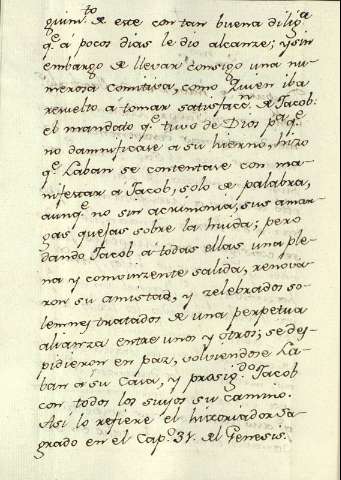 guim.to de este con tan buena dilig.a
q.e á pocos dias le dio alcanze; y sin
embargo de llevar consigo una nu-
merosa comitiva, como quien iba
resuelto á tomar satisfacn. de Jacob:
el mandato q.e tuvo de Dios p.a q.e
no damnificase a su hierno, hizo
q.e Laban se contentase con ma-
nifestar a Jacob, solo de palabra,
aunq.e no sin acrimonia, sus amar-
gas quejas sobre la huida; pero
dando Jacob a todas ellas una ple-
na y convinzente salida, renova-
ron su amistad, y zelebrados so-
lemnes tratados de una perpetua
alianza entre unos y otros; se des-
pidieron en paz, volviendose La-
ban a su Casa, y prosig.do Jacob
con todos los suyos su camino.
Asi lo refiere el historiador Sa-
grado en el Cap.o 31. del Genesis.